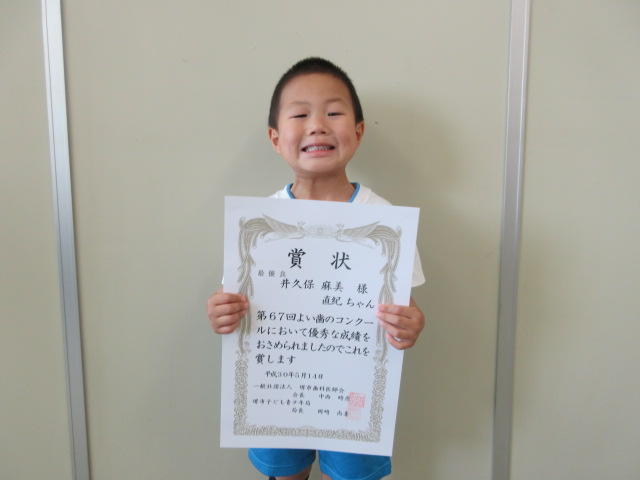 賞状
最優良
井久保 麻美 様
直紀 ちゃん
第67回よい歯のコンクー
ルにおいて優秀な成績を
おさめられましたのでこれを
賞します
平成30年5月14日
一般社団法人 堺市歯科医師会
会長 中西
堺市子ども青少年局
局長 岡崎 尚喜